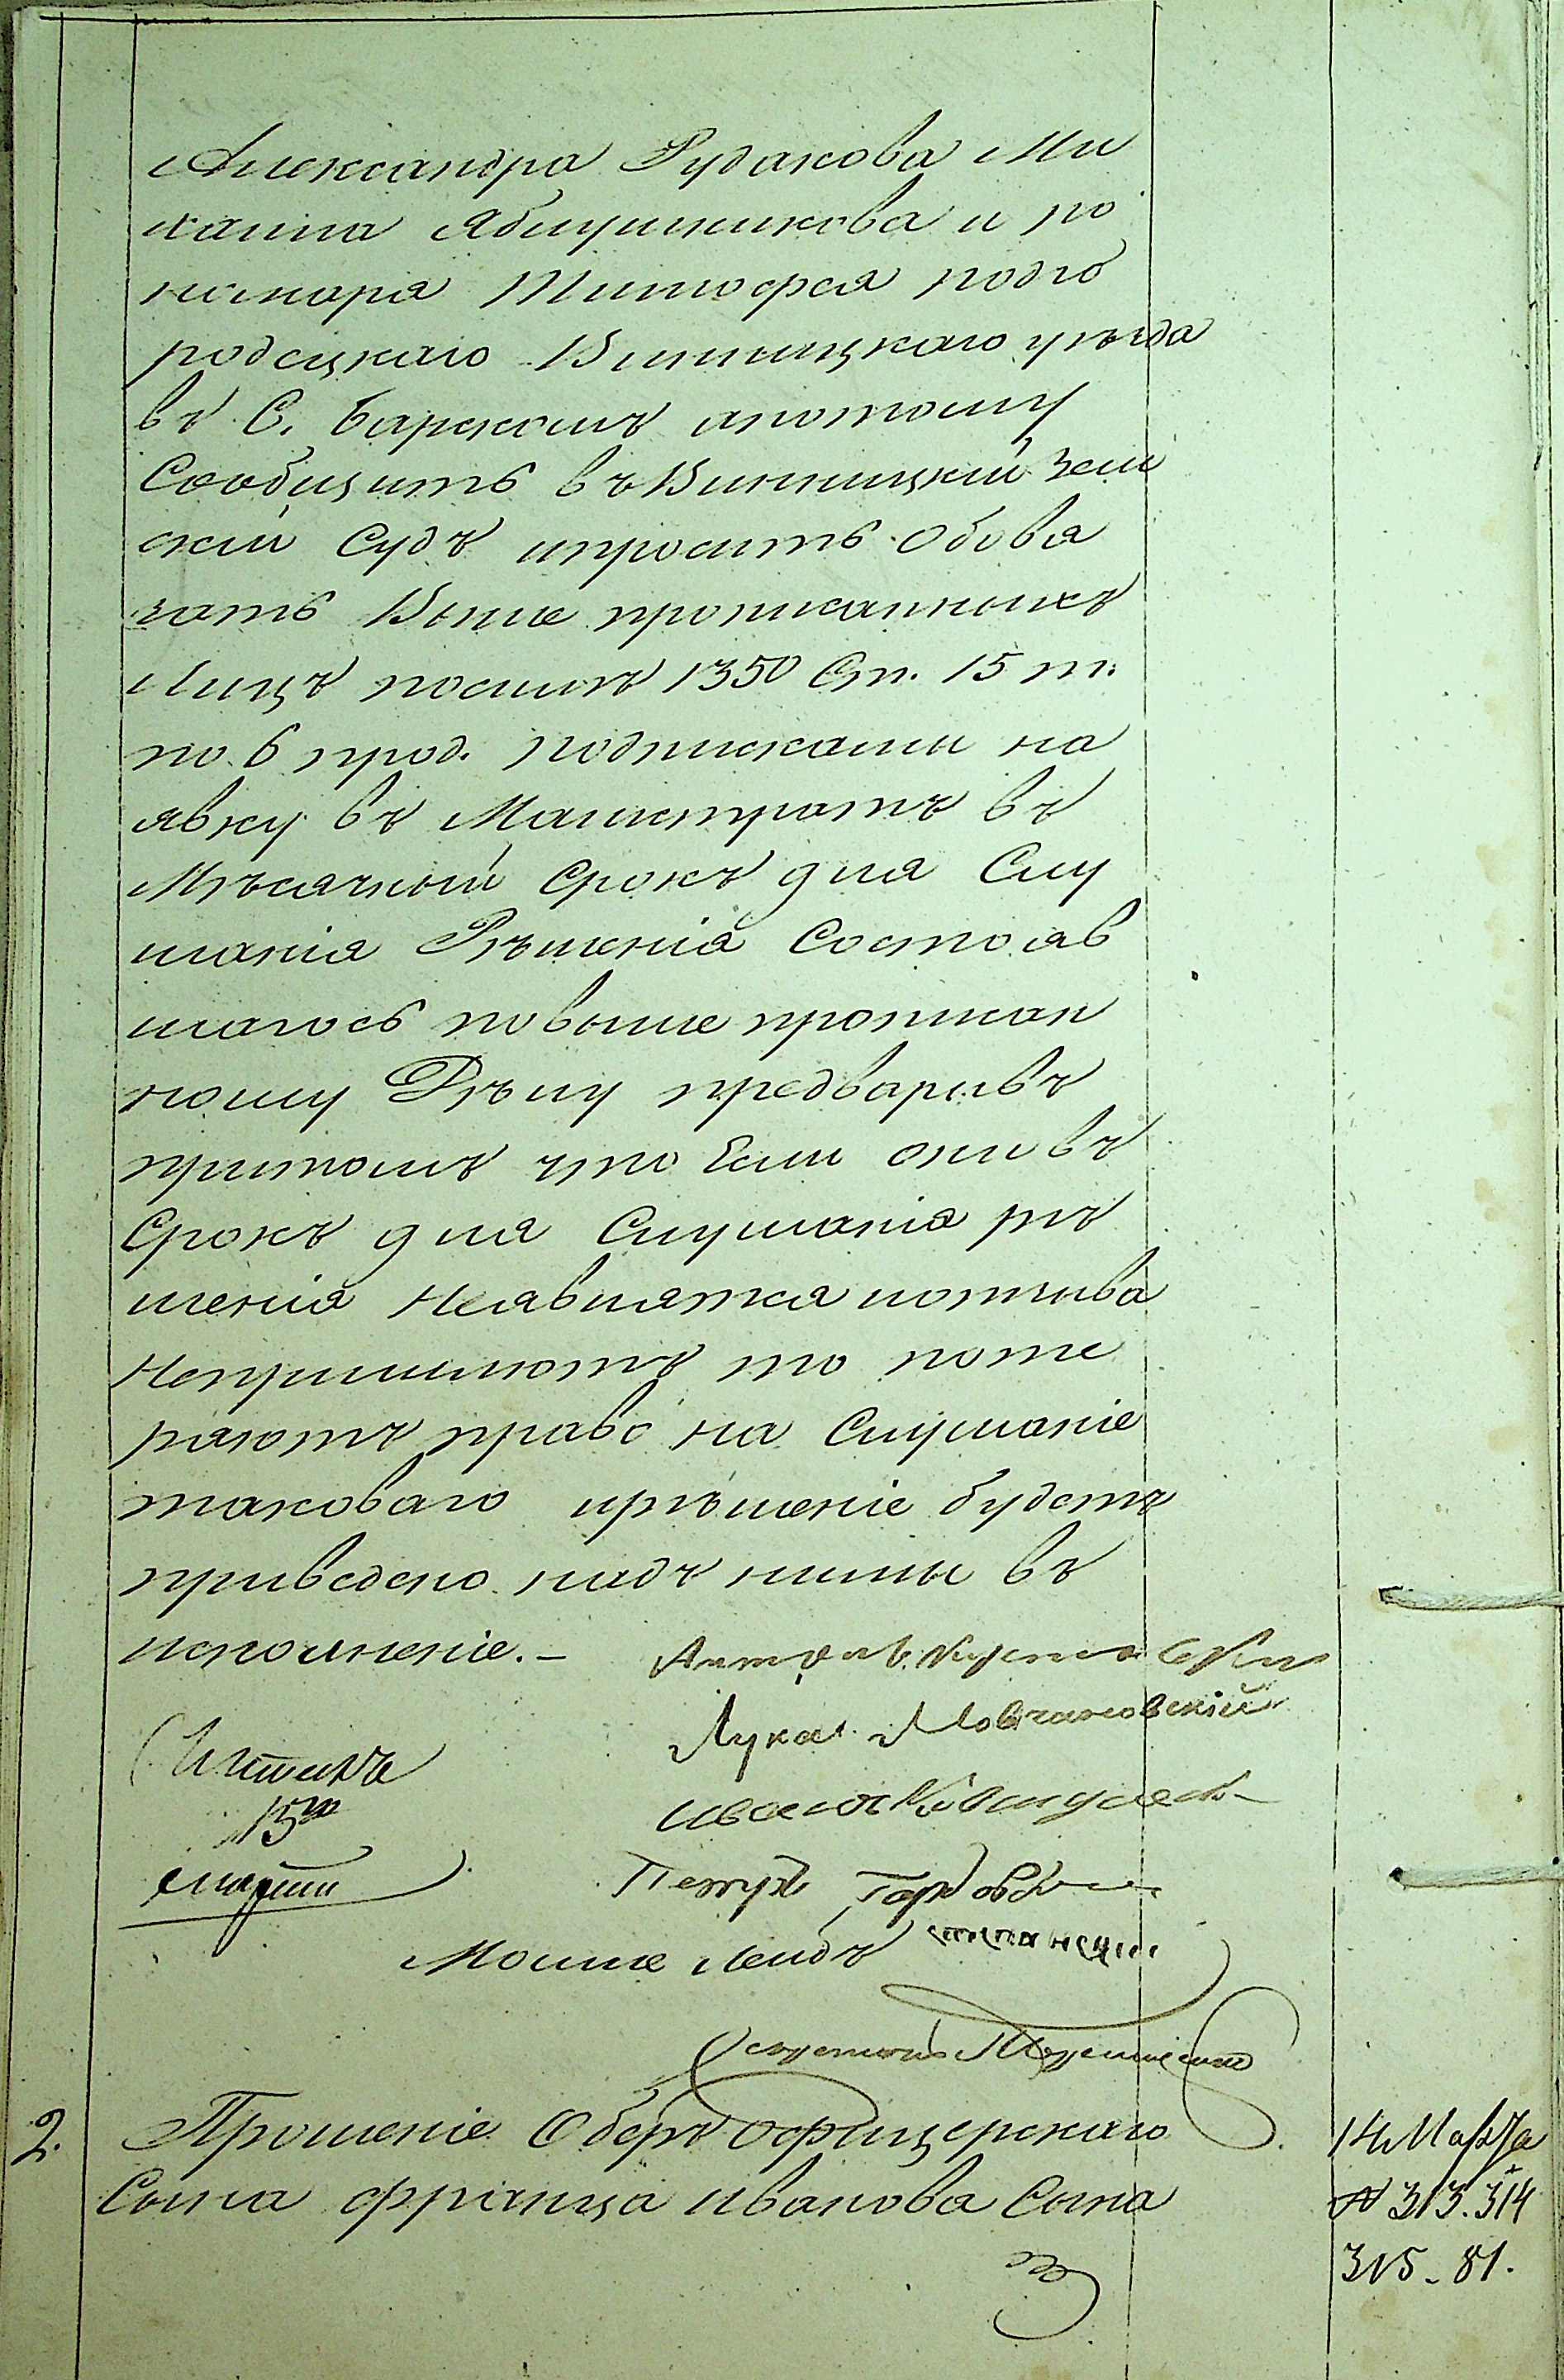 Александра Рудакова Ми
хаила Яблушникова и по
номаря Тимофея подго
родецкаго Винницкаго уѣзда
въ С. Барскомъ апотому
Сообщить въ Винницкій Зем
скій Судъ ипросить Обова
зать Выше прописанныхъ
Лицъ посилъ 1350 Ст. 15 т.
по 6 прод. подписками на
явку въ Магистратъ въ
Мѣсячный Срокъ для Слу
шанія Рѣшенія Состояв
шагось повыше прописан
ному Дѣлу предваривъ
притомъ что Если они въ
Срокъ для Слушанія рѣ
шенія Неявлятся иотзыва
Непришлютъ то поте
ряютъ право на Слушаніе
таковаго ирѣшеніе будетъ
приведено надъ ними въ
исполненіе.-
Лука Мовчановскій
15го
Петръ
Мошке Лейбъ
2. Прошеніе Оберъ офицерскаго
Сына Франца Иванова Сына
14 Марта
№ 313. 314
315. 81.